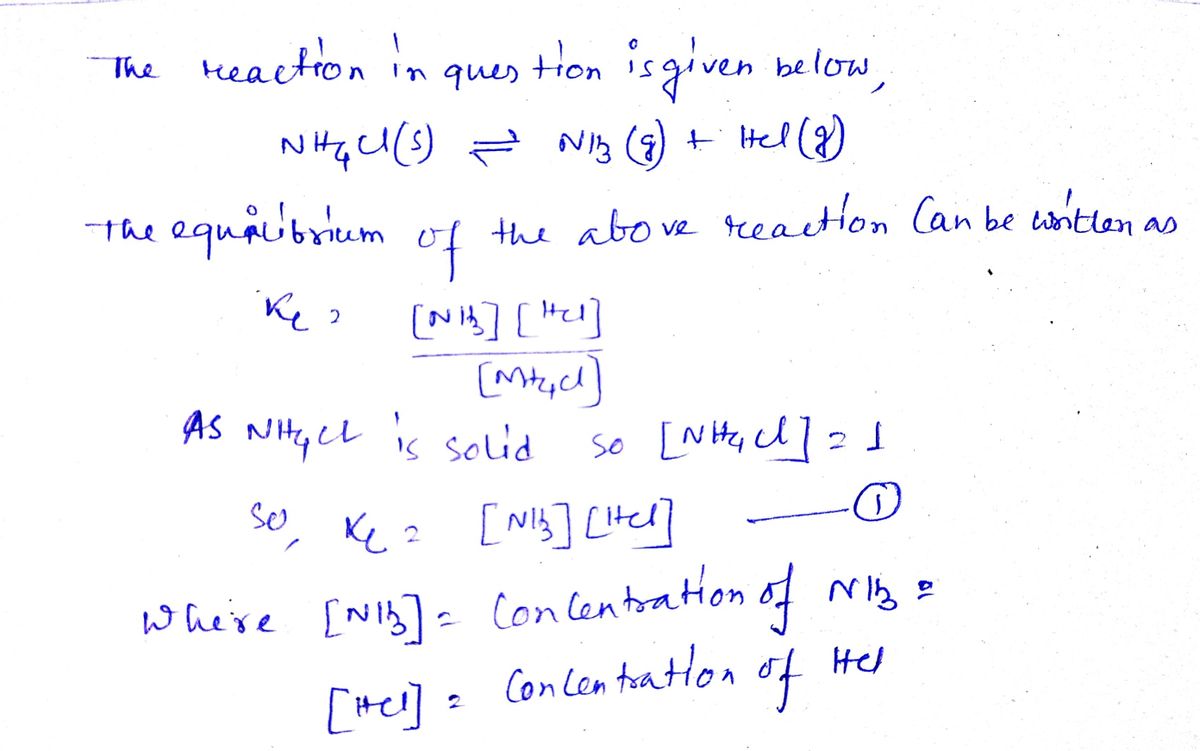 The reaction in question is given below,
NH4Cl(s) ⇌ NH3 (g) + HCl (g)
The equilibrium of the above reaction can be written as
Kc = [NH3] [HCl]
[NH4Cl]
As NH4Cl is solid so [NH4Cl] = 1
So, Kc = [NH3] [HCl] —— ①
Where [NH3] = Concentration of NH3 =
[HCl] = Concentration of HCl